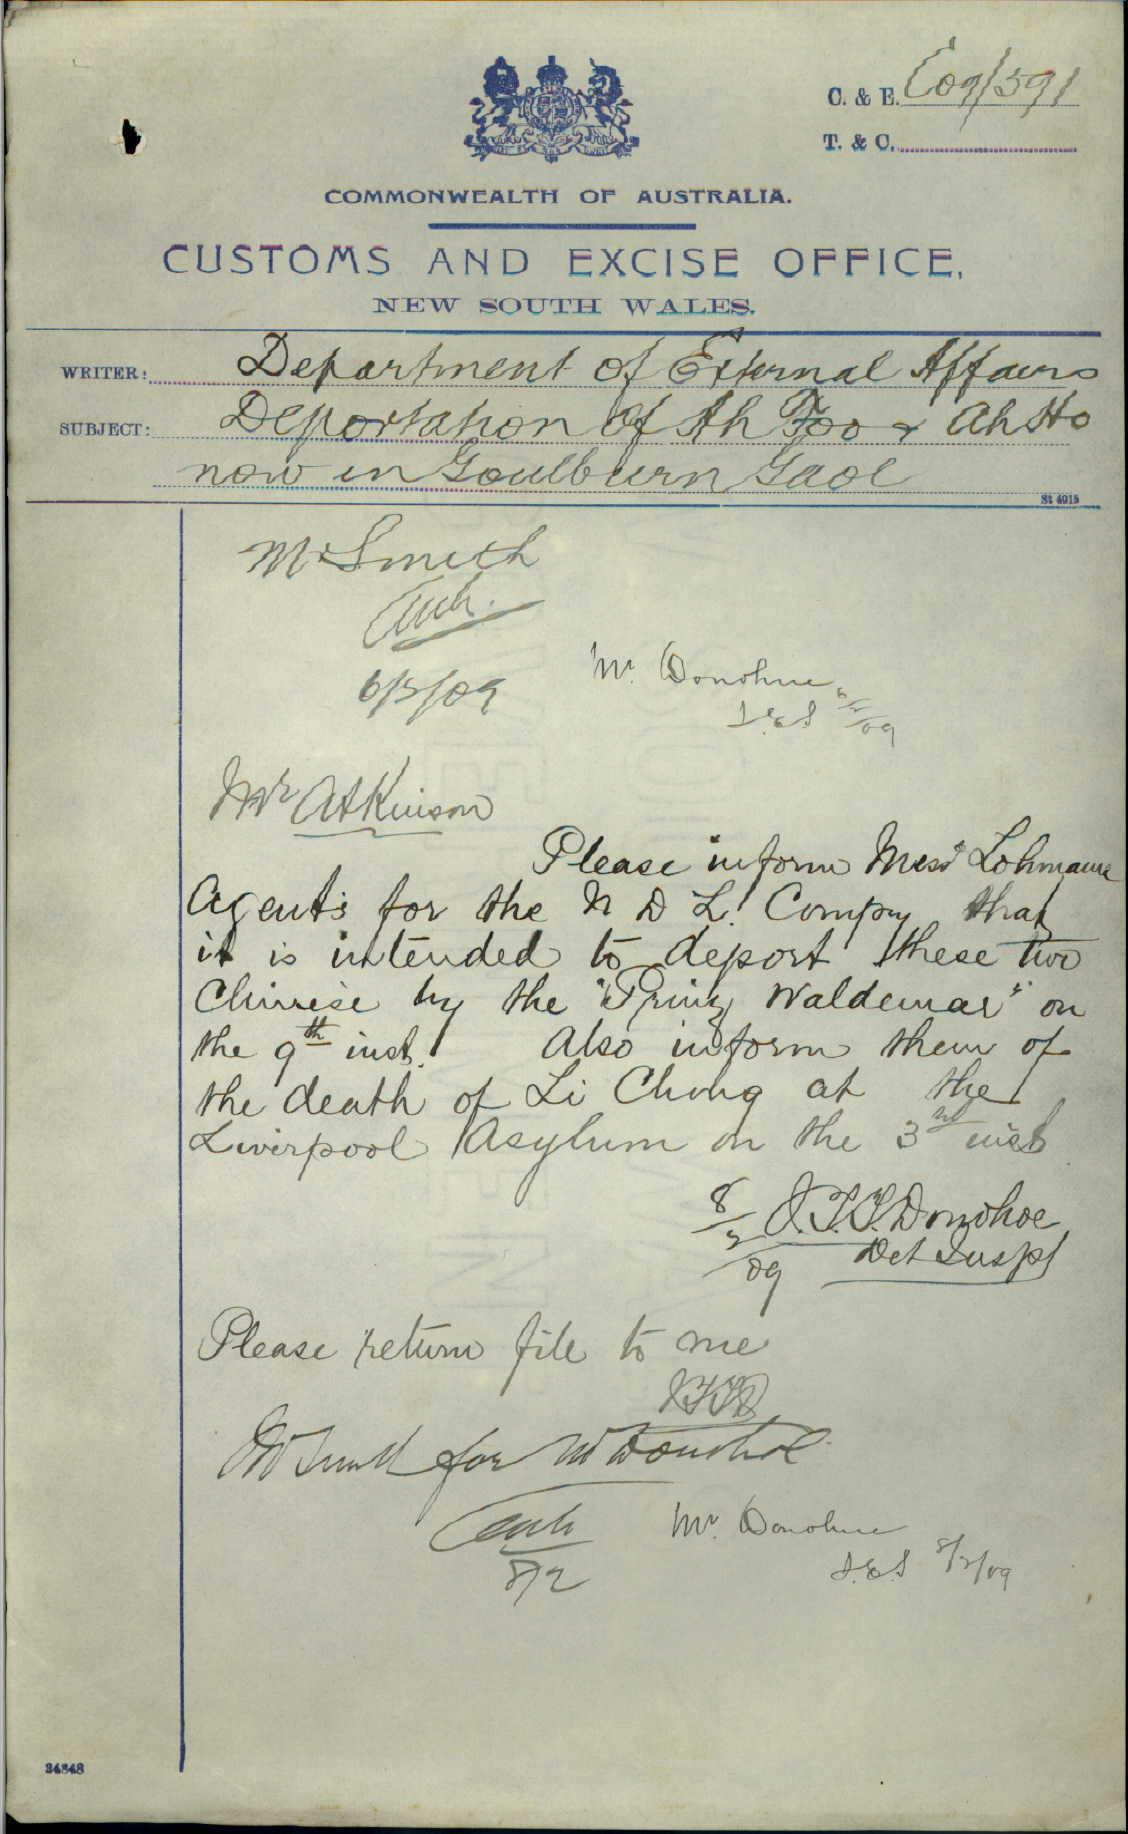 C. & E. C09/591
T. & C.
COMMONWEALTH OF AUSTRALIA.
CUSTOMS AND EXCISE OFFICE,
NEW SOUTH WALES.
WRITER: Department of External Affairs
SUBJECT: Deportation of Ah Foo & Ah Ho
now in Goulburn Gaol
St 4015
Mr Smith
6/2/09
Mr. Donohue
6/2/09
Mr Atkinson
Please inform Messrs Lohmann
Agents for the N D L. Compy that
it is intended to deport these two
Chinese by the "Prinz Waldemar" on
the 9th inst. Also inform them of
the death of Li Chong at the
Liverpool Asylum on the 3rd inst
8/2/09 J.T.T. Donohoe
Det Inspr
Please return file to me
JTTD
Mr Smith for Mr Donohoe
8/2
Mr. Donohue
8/2/09
24848